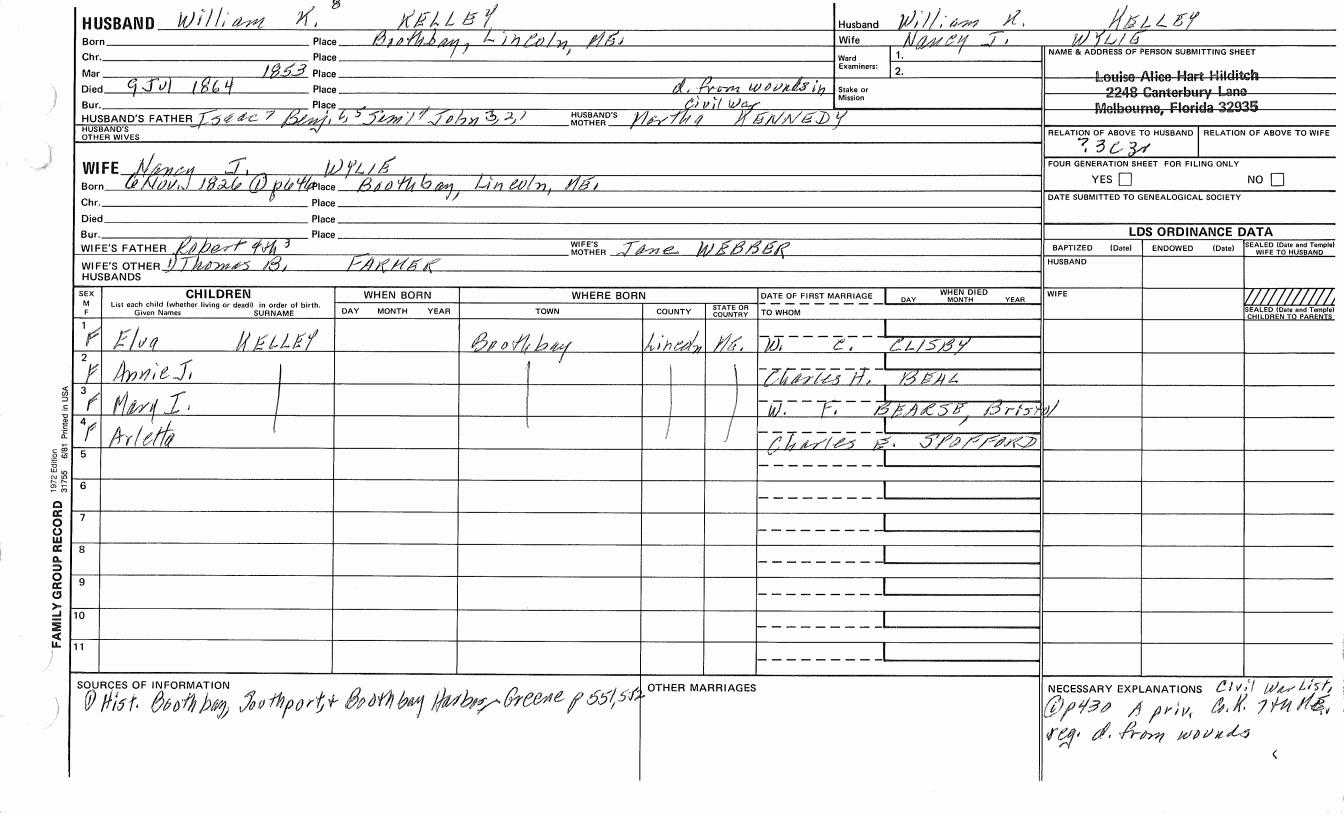 HUSBAND William K. 8 KELLEY
Born Place Boothbay, Lincoln, ME.
Chr. Place
Mar 1853 Place
Died 9 Jul 1864 Place d. from wounds in
Bur. Place Civil War
HUSBAND'S FATHER Isaac 7 Benj. 6, 5 John 3, 2, 1 HUSBAND'S MOTHER Martha KENNEDY
HUSBAND'S OTHER WIVES
WIFE Nancy J. WYLIE
Born 6 Nov. 1826 ① p646 Place Boothbay, Lincoln, ME.
Chr. Place
Died Place
Bur. Place
WIFE'S FATHER Robert 4th 3 WIFE'S MOTHER Jane WEBBER
WIFE'S OTHER HUSBANDS 1) Thomas B. FARMER
Husband William K. KELLEY
Wife Nancy J. WYLIE
Ward Examiners: 1.
2.
Stake or Mission
NAME & ADDRESS OF PERSON SUBMITTING SHEET
Louise Alice Hart Hilditch
2248 Canterbury Lane
Melbourne, Florida 32935
RELATION OF ABOVE TO HUSBAND RELATION OF ABOVE TO WIFE
? 3C3r
FOUR GENERATION SHEET FOR FILING ONLY
YES NO
DATE SUBMITTED TO GENEALOGICAL SOCIETY
LDS ORDINANCE DATA
BAPTIZED (Date) ENDOWED (Date) SEALED (Date and Temple) WIFE TO HUSBAND
HUSBAND
WIFE
SEALED (Date and Temple) CHILDREN TO PARENTS
SEX M F CHILDREN WHEN BORN WHERE BORN DATE OF FIRST MARRIAGE WHEN DIED
List each child (whether living or dead) in order of birth. DAY MONTH YEAR TOWN COUNTY STATE OR COUNTRY TO WHOM DAY MONTH YEAR
Given Names SURNAME
1 F Elva KELLEY Boothbay Lincoln ME. W. C. CLISBY
2 F Annie J. Charles H. BEAL
3 F Mary I. W. F. BEARSE, Bristol
4 F Arletta Charles E. SPOFFORD
5
6
7
8
9
10
11
FAMILY GROUP RECORD 1972 Edition 31755 6/81 Printed in USA
SOURCES OF INFORMATION
① Hist. Boothbay, Southport, & Boothbay Harbor - Greene p 551, 552
OTHER MARRIAGES
NECESSARY EXPLANATIONS Civil War List,
① p430 A priv. Co. K. 7th ME.
reg. d. from wounds